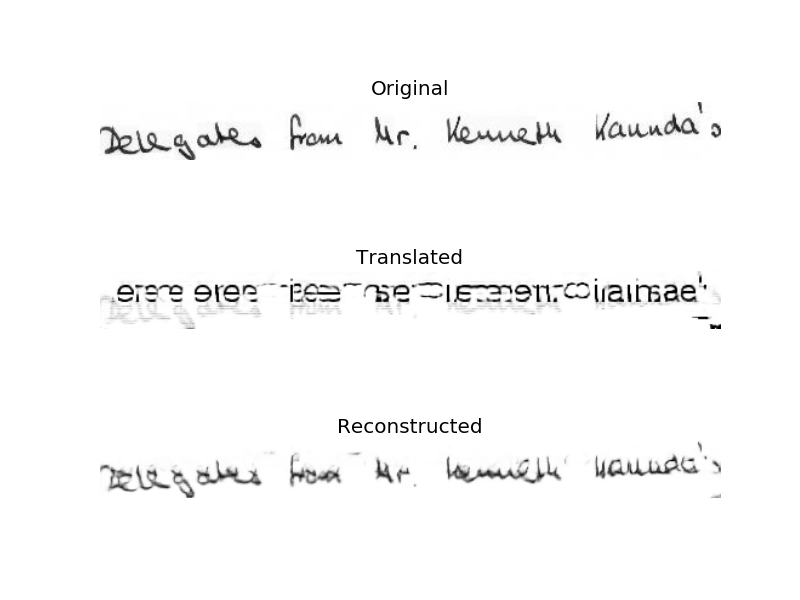 Original
Delegates from Mr. Kenneth Kaunda's
Translated
Reconstructed
Delegates from Mr. Kenneth Kaunda's